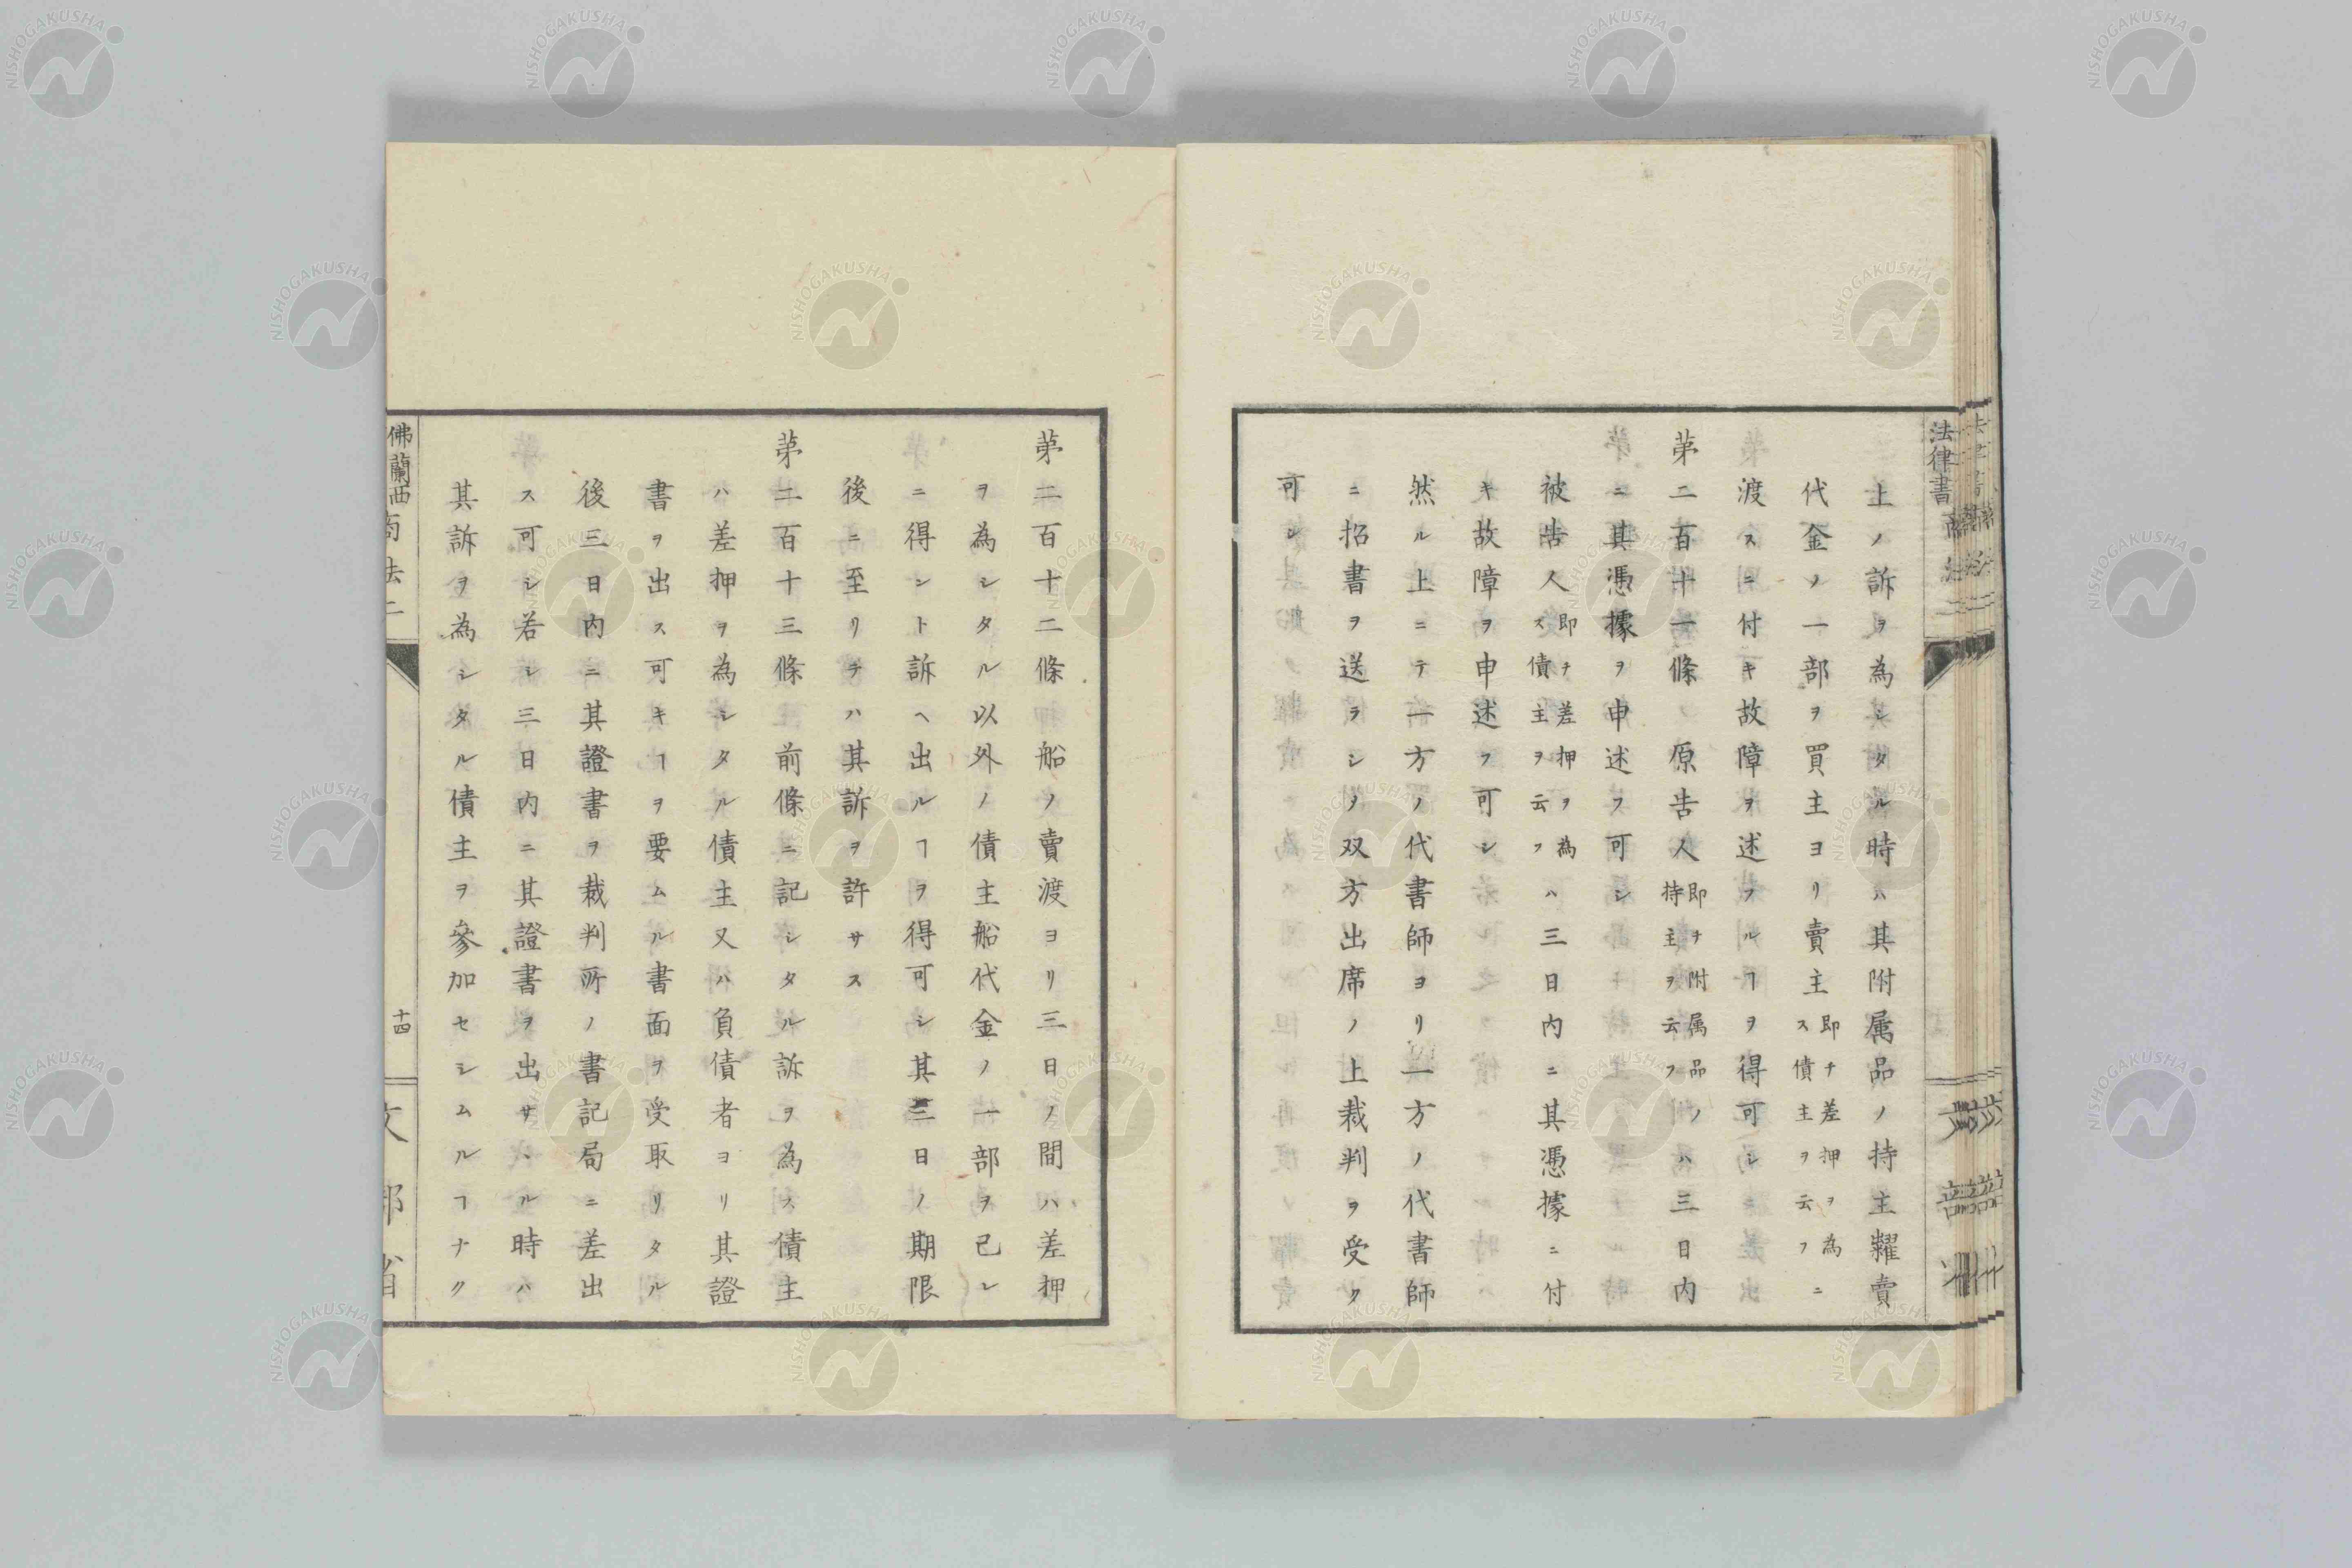 上ノ訴ヲ為シタル時ハ其附属品ノ持主糶賣
代金ノ一部ヲ買主ヨリ賣主即チ差押ヲ為ス債主ヲ云フニ
渡スニ付キ故障ヲ述フルヿヲ得可シ
苐二百十一條 原告人即チ附属品ノ持主ヲ云フハ三日内
ニ其憑據ヲ申述フ可シ
被告人即チ差押ヲ為ス債主ヲ云フハ三日内ニ其憑據ニ付
キ故障ヲ申述フ可シ
然ル上ニテ一方ノ代書師ヨリ一方ノ代書師
ニ招書ヲ送ラシメ双方出席ノ上裁判ヲ受ク
可シ
苐二百十二條 船ノ賣渡ヨリ三日ノ間ハ差押
ヲ為シタル以外ノ債主船代金ノ一部ヲ已レ
ニ得ント訴ヘ出ルヿヲ得可シ其三日ノ期限
後ニ至リテハ其訴ヲ許サス
苐二百十三條 前條ニ記シタル訴ヲ為ス債主
ハ差押ヲ為シタル債主又ハ負債者ヨリ其證
書ヲ出ス可キヿヲ要ムル書面ヲ受取リタル
後三日内ニ其證書ヲ裁判所ノ書記局ニ差出
ス可シ若シ三日内ニ其證書ヲ出サヽル時ハ
其訴ヲ為シタル債主ヲ參加セシムルヿナク
法律書
佛蘭西商法二
十四
文部省
NISHOGAKUSHA